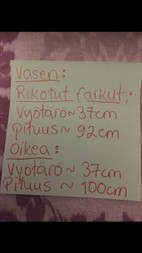 Vasen:
Rikotut farkut:
Vyötärö~37cm
Pituus~ 92cm
Oikea:
Vyötärö ~ 37cm
Pituus ~ 100cm